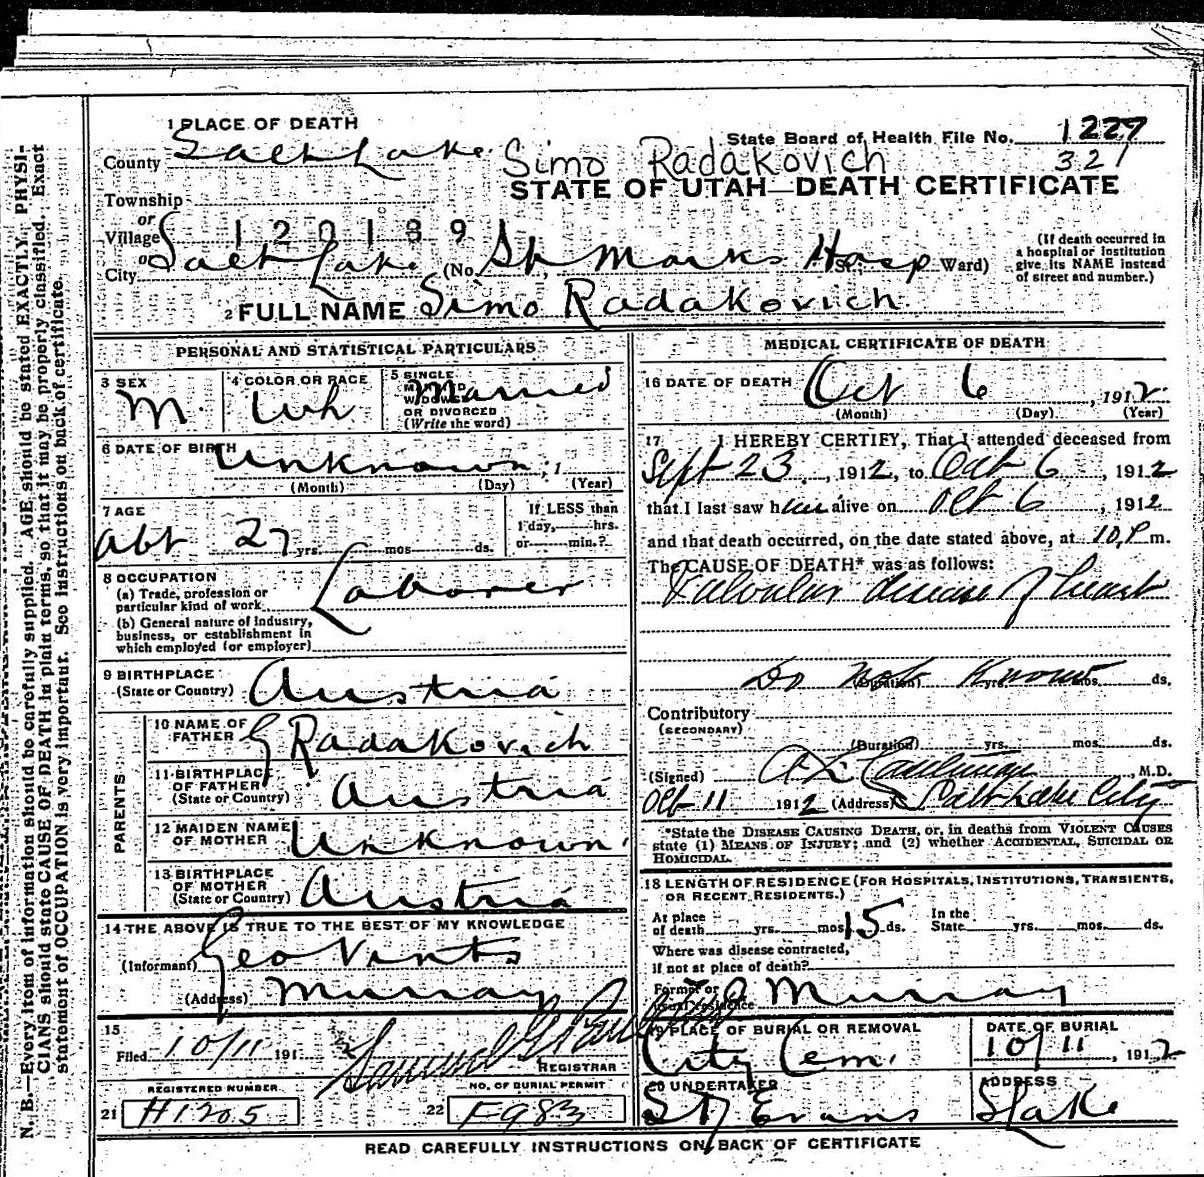 1 PLACE OF DEATH
State Board of Health File No. 1227
County Salt Lake
Simo Radakovich 321
STATE OF UTAH—DEATH CERTIFICATE
Township
or
Village 120139
or
City Salt Lake (No. St Marks Hosp St. Ward)
(If death occurred in
a hospital or institution
give its NAME instead
of street and number.)
2 FULL NAME Simo Radakovich
PERSONAL AND STATISTICAL PARTICULARS
3 SEX
M.
4 COLOR OR RACE
Wh
5 SINGLE
MARRIED
WIDOWED
OR DIVORCED
(Write the word)
Married
6 DATE OF BIRTH
Unknown, 1
(Month) (Day) (Year)
7 AGE
abt 27 yrs. mos. ds.
If LESS than
1 day, hrs.
or min.?
8 OCCUPATION
(a) Trade, profession or
particular kind of work
Laborer
(b) General nature of industry,
business, or establishment in
which employed (or employer)
9 BIRTHPLACE
(State or Country) Austria
PARENTS
10 NAME OF
FATHER G Radakovich
11 BIRTHPLACE
OF FATHER
(State or Country) Austria
12 MAIDEN NAME
OF MOTHER Unknown
13 BIRTHPLACE
OF MOTHER
(State or Country) Austria
14 THE ABOVE IS TRUE TO THE BEST OF MY KNOWLEDGE
(Informant) Geo Vints
(Address) Murray
15
Filed 10/11 191
Samuel G Paul
REGISTRAR
REGISTERED NUMBER
21 H1205
NO. OF BURIAL PERMIT
22 F983
MEDICAL CERTIFICATE OF DEATH
16 DATE OF DEATH Oct 6, 1912
(Month) (Day) (Year)
17 I HEREBY CERTIFY, That I attended deceased from
Sept 23, 1912, to Oct 6, 1912
that I last saw him alive on Oct 6, 1912
and that death occurred, on the date stated above, at 10 P m.
The CAUSE OF DEATH* was as follows:
Valvular disease of heart
Do Not Know
(Duration) yrs. mos. ds.
Contributory
(SECONDARY)
(Duration) yrs. mos. ds.
(Signed) M.D.
Oct 11 1912 (Address) Salt Lake City
*State the DISEASE CAUSING DEATH, or, in deaths from VIOLENT CAUSES
state (1) MEANS OF INJURY; and (2) whether ACCIDENTAL, SUICIDAL OR
HOMICIDAL.
18 LENGTH OF RESIDENCE (FOR HOSPITALS, INSTITUTIONS, TRANSIENTS,
OR RECENT RESIDENTS.)
At place
of death yrs. mos. 15 ds.
In the
State yrs. mos. ds.
Where was disease contracted,
if not at place of death?
Former or
usual residence Murray
19 PLACE OF BURIAL OR REMOVAL
City Cem.
DATE OF BURIAL
10/11, 1912
20 UNDERTAKER
S D Evans
ADDRESS
SLake
READ CAREFULLY INSTRUCTIONS ON BACK OF CERTIFICATE
N. B.—Every item of information should be carefully supplied. AGE should be stated EXACTLY. PHYSI-
CIANS should state CAUSE OF DEATH in plain terms, so that it may be properly classified. Exact
statement of OCCUPATION is very important. See instructions on back of certificate.